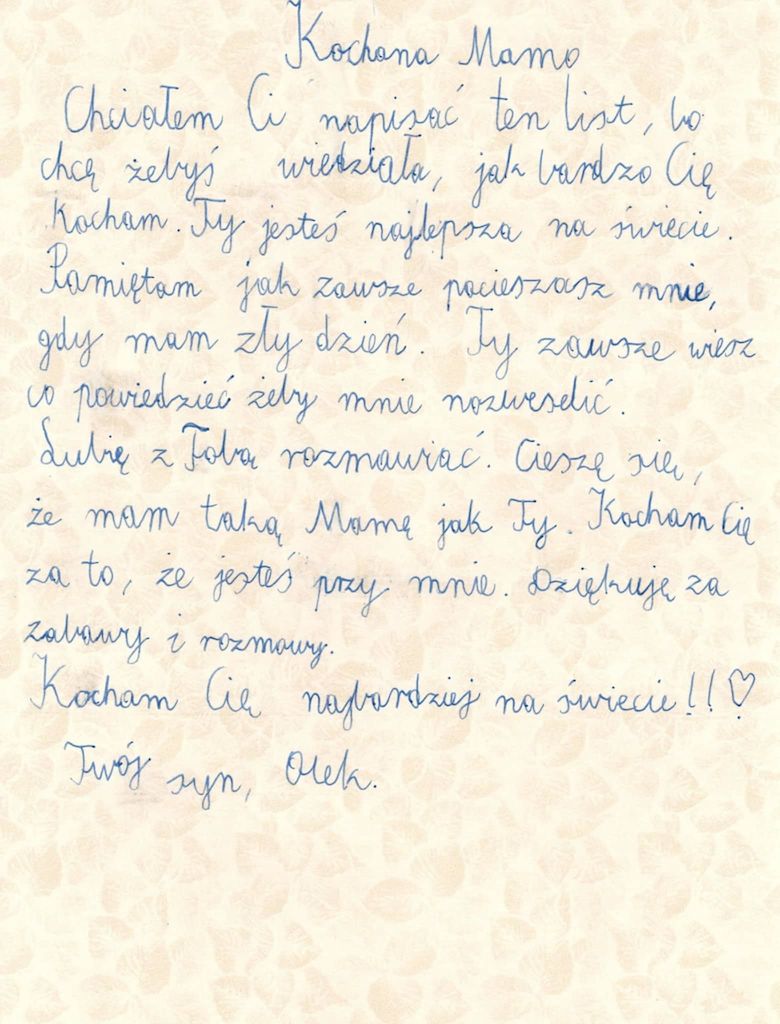 Kochana Mamo
Chciałem Ci napisać ten list, bo
chcę żebyś wiedziała, jak bardzo Cię
kocham. Ty jesteś najlepsza na świecie.
Pamiętam jak zawsze pocieszasz mnie,
gdy mam zły dzień. Ty zawsze wiesz
co powiedzieć żeby mnie rozweselić.
Lubię z Tobą rozmawiać. Cieszę się,
że mam taką Mamę jak Ty. Kocham Cię
za to, że jesteś przy mnie. Dziękuję za
zabawy i rozmowy.
Kocham Cię najbardziej na świecie!!♡
Twój syn, Olek.